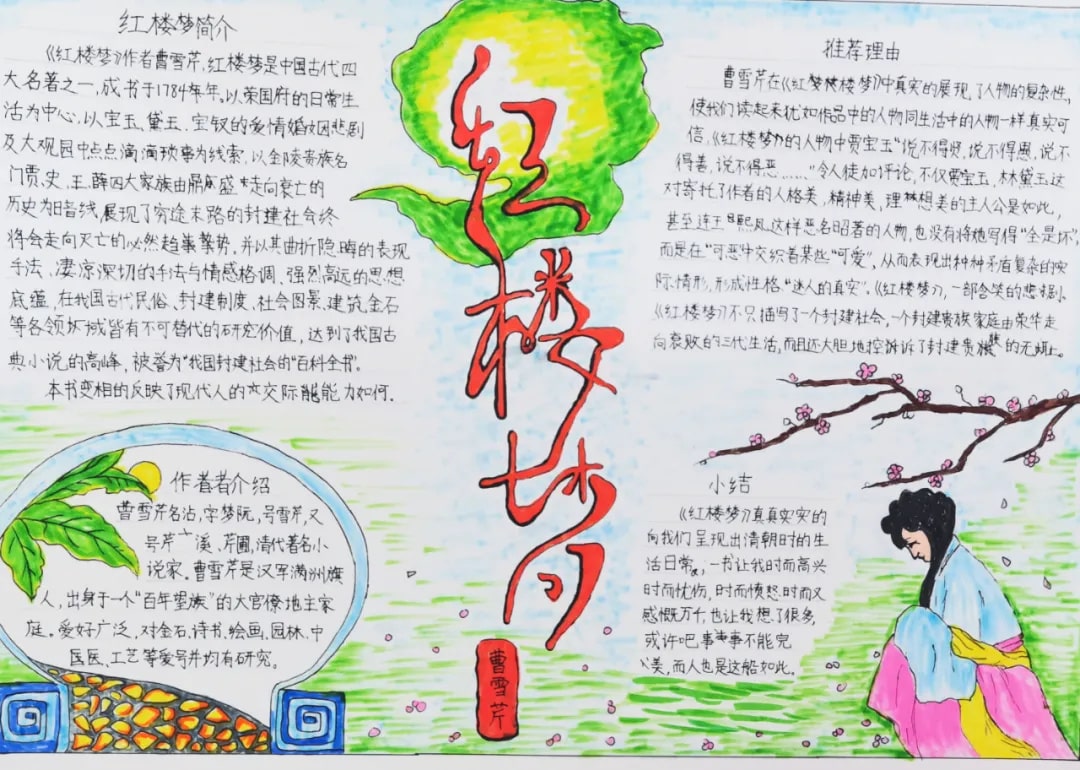 红楼梦简介
《红楼梦》作者曹雪芹,红楼梦是中国古代四
大名著之一,成书于1784年。以荣国府的日常生
活为中心,以宝玉、黛玉、宝钗的爱情婚姻悲剧
及大观园中点点滴滴琐事为线索,以金陵贵族名
门贾、史、王、薛四大家族由鼎盛走向衰亡的
历史为暗线,展现了穷途末路的封建社会终
将会走向灭亡的必然趋势。并以其曲折隐晦的表现
手法、凄凉深切的手法与情感格调、强然高远的思想
底蕴,在我国古代民俗、封建制度、社会图景、建筑金石
等各领域皆有不可替代的研究价值,达到了我国古
典小说的高峰,被誉为"我国封建社会的"百科全书"。
本书变相的反映了现代人的交际能力如何.
红楼梦
曹雪芹
推荐理由
曹雪芹在《红楼梦》中真实的展现了人物的复杂性,
使我们读起来犹如作品中的人物同生活中的人物一样真实可
信,《红楼梦》的人物中贾宝玉"说不得贤,说不得愚,说不
得善,说不得恶……"令人徒加评论,不仅贾宝玉,林黛玉这
对寄托了作者的人格美,精神美,理想美的主人公是如此,
甚至连王熙凤这样恶名昭著的人物,也没有将她写得"全是坏",
而是在"可恶"中交织着某些"可爱",从而表现出种种矛盾复杂的实
际情形,形成性格"迷人的真实"。《红楼梦》,一部含笑的悲剧。
《红楼梦》不只描写了一个封建社会,一个封建贵族家庭由荣华走
向衰败的三代生活,而且还大胆地控诉了封建贵族的无耻。
作者介绍
曹雪芹名沾,字梦阮,号雪芹,又
号芹溪、芹圃,清代著名小
说家。曹雪芹是汉军满洲旗
人,出身于一个"百年望族"的大官僚地主家
庭。爱好广泛,对金石、诗书、绘画、园林、中
医、工艺等爱号并均有研究。
小结
《红楼梦》真真实实的
向我们呈现出清朝时的生
活日常,一书让我时而高兴
时而忧伤,时而愤怒,时而又
感慨万千,也让我想了很多,
或许吧,事事不能完
美,而人也是这般如此。